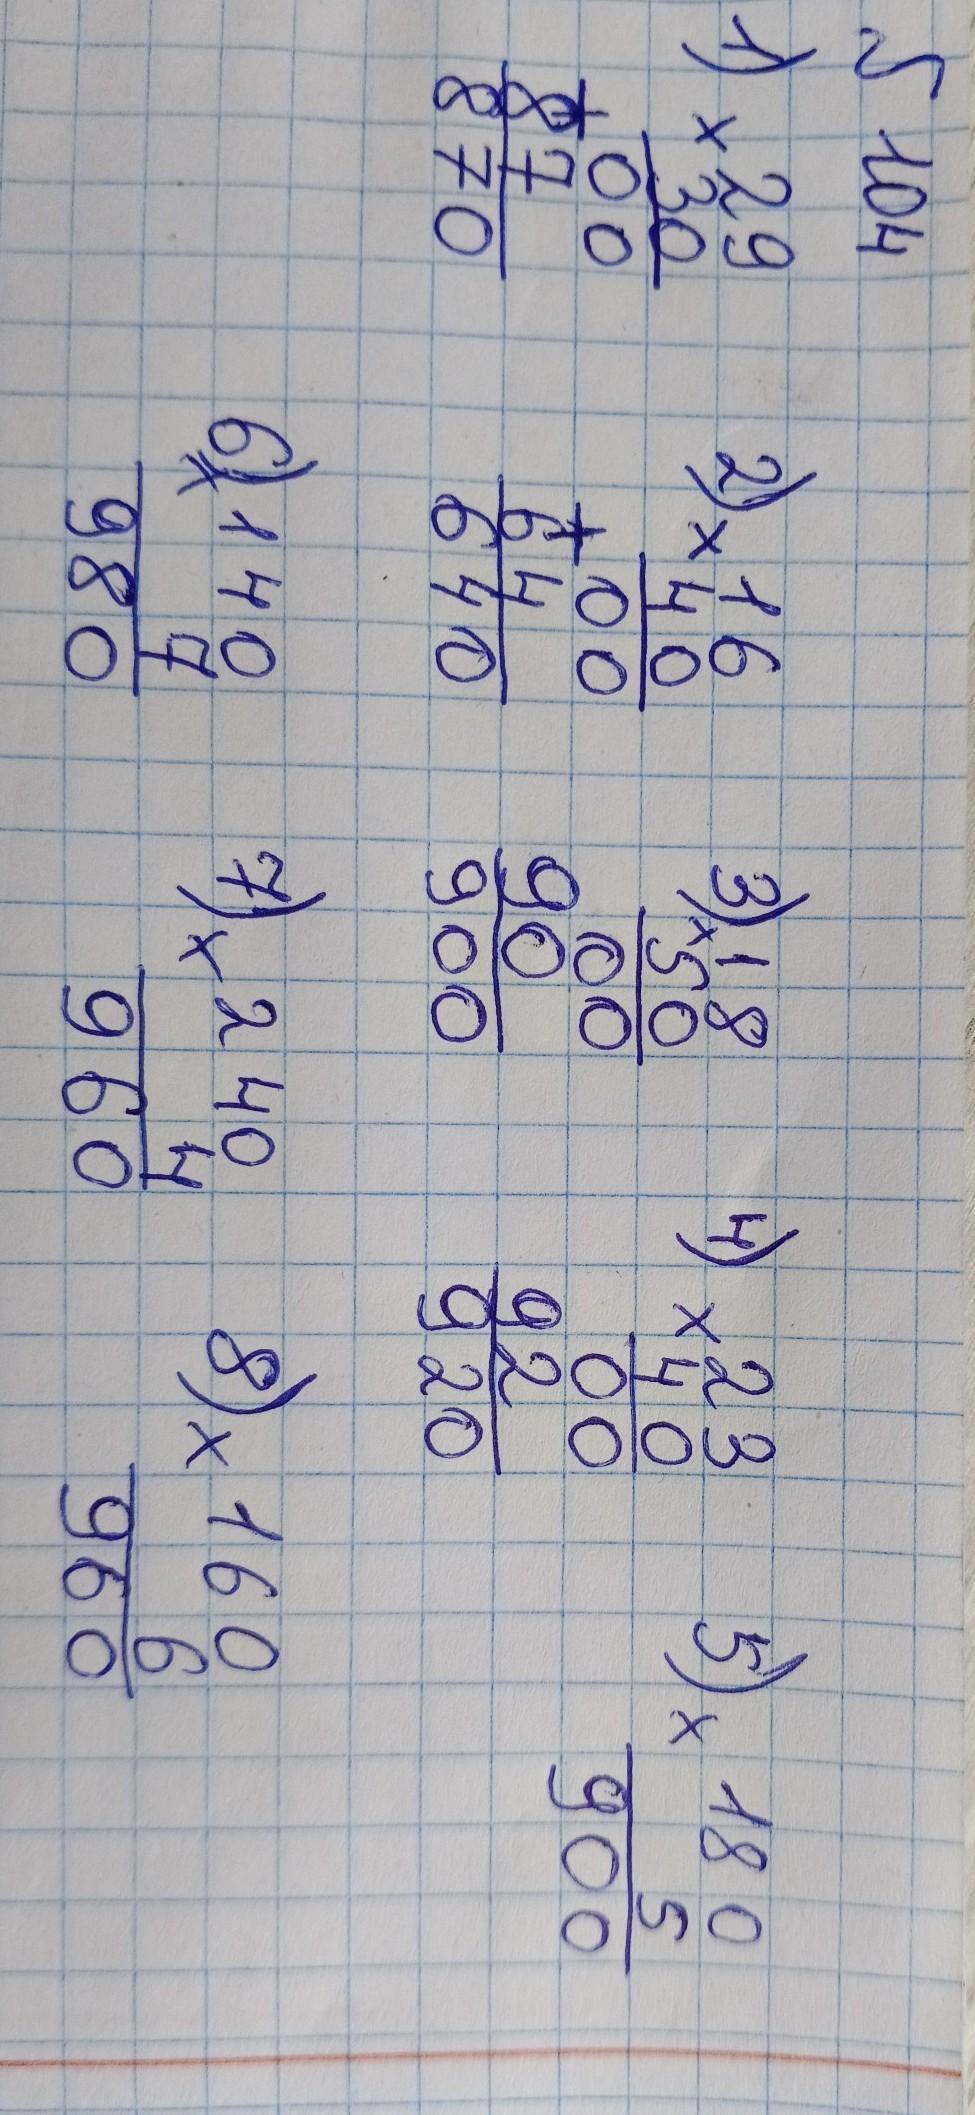 № 104
1) × 29 2) × 16 3) × 18 4) × 23 5) × 180
30 40 50 40 5
+ 00 + 00 00 00 900
87 64 90 92
870 640 900 920
6) × 140 7) × 240 8) × 160
7 4 6
980 960 960